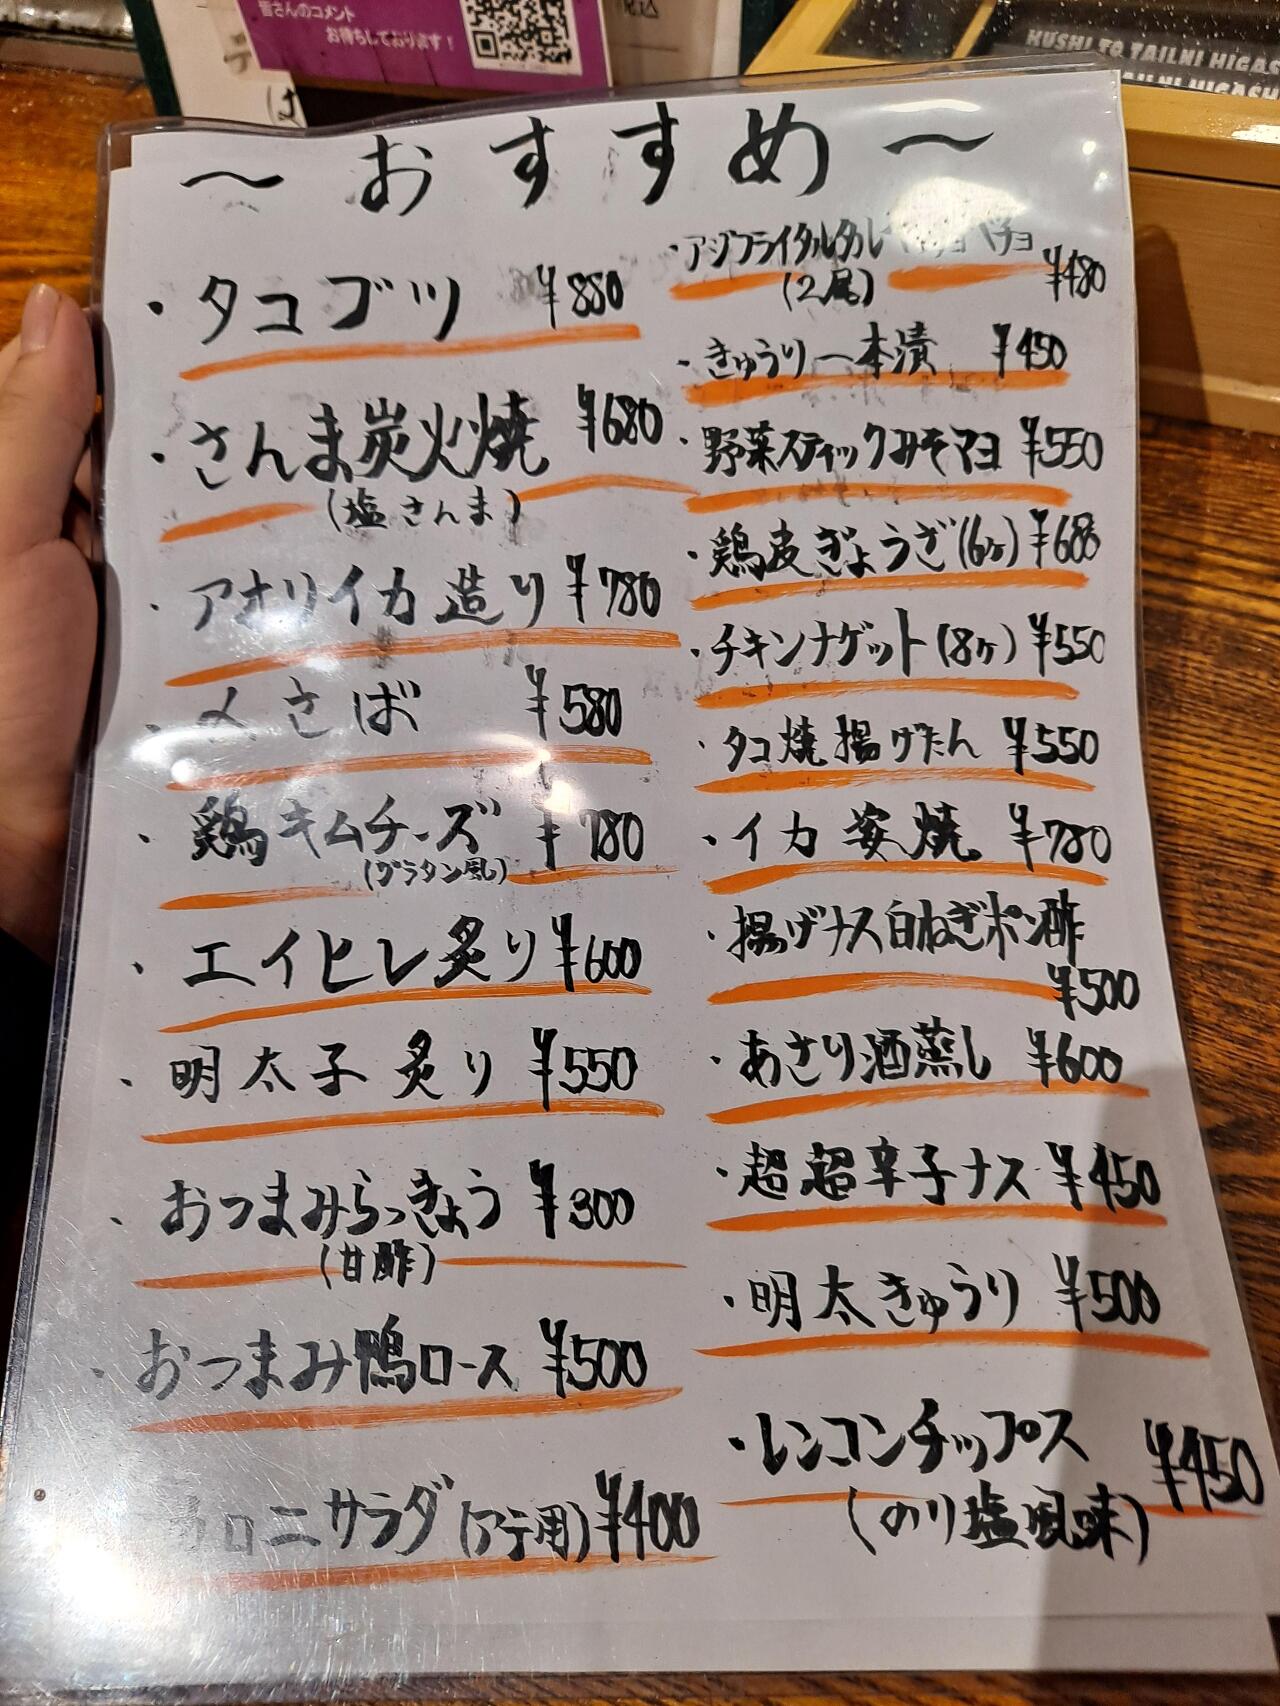 皆さんのコメント
お待ちしております！
KUSHI TO TAILNI HIGAS
〜おすすめ〜
・タコブツ ¥880
・さんま炭火焼 ¥680
(塩さんま)
・アオリイカ造り ¥780
・〆さば ¥580
・鶏キムチーズ ¥780
(グラタン風)
・エイヒレ炙り ¥600
・明太子炙り ¥550
・おつまみらっきょう ¥300
(甘酢)
・おつまみ鴨ロース ¥500
マカロニサラダ(アテ用) ¥400
・アジフライタルタル
(2尾) ¥480
・きゅうり一本漬 ¥450
・野菜スティックみそマヨ ¥550
・鶏皮ぎょうざ(6ヶ) ¥680
・チキンナゲット(8ヶ) ¥550
・タコ焼揚げたん ¥550
・イカ姿焼 ¥780
・揚げナス白ねぎポン酢
¥500
・あさり酒蒸し ¥600
・超超辛子ナス ¥450
・明太きゅうり ¥500
・レンコンチップス ¥450
(のり塩風味)